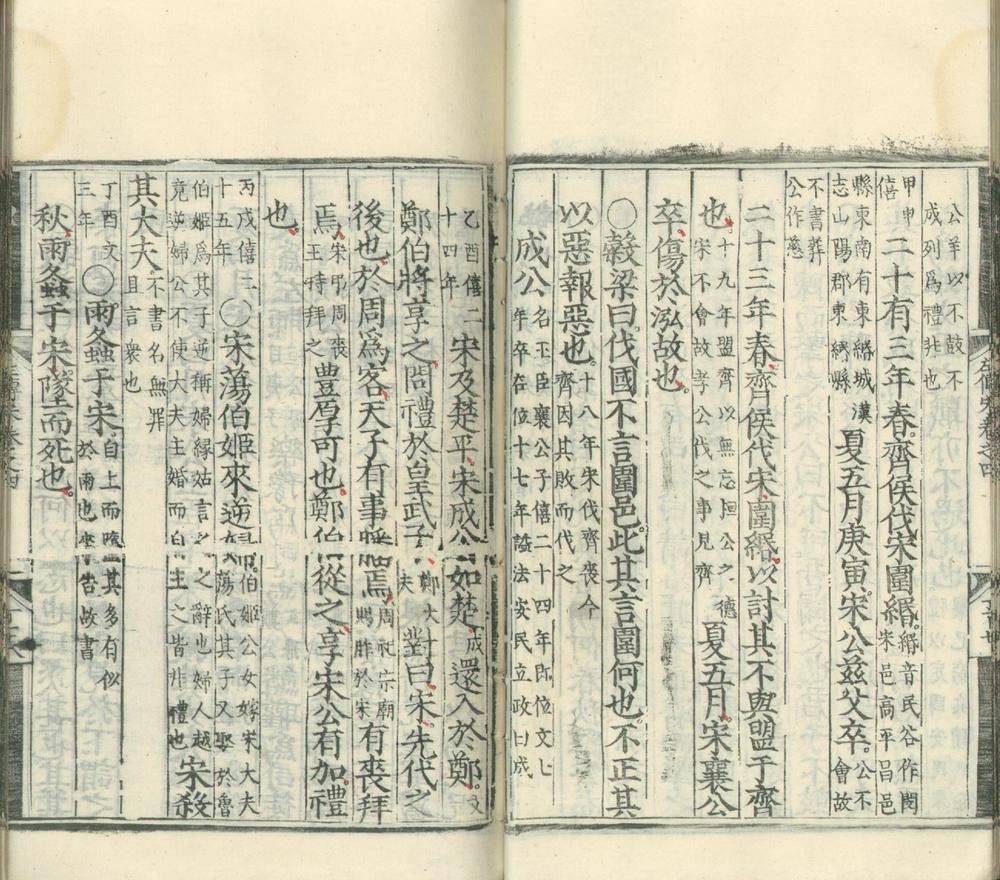 公羊以不鼓不
成列爲禮非也
甲申僖二十有三年春齊侯伐宋圍緡緡音民谷作閔宋邑高平昌邑
縣東南有東緡城漢志山陽郡東緡縣夏五月庚寅宋公茲父卒公不會故
不書葬
公作慈
二十三年春齊侯伐宋圍緡以討其不與盟于齊
也十九年盟齊以無忘桓公之德宋不會故孝公伐之事見齊夏五月宋襄公
卒傷於泓故也
○穀梁曰伐國不言圍邑此其言圍何也不正其
以惡報惡也十八年宋伐齊喪今齊因其敗而伐之
成公名王臣襄公子僖二十四年即位文七年卒在位十七年諡法安民立政曰成
乙酉僖二十四年宋及楚平宋成公如楚成還入於鄭文
鄭伯將享之問禮於皇武子鄭大夫對曰宋先代之
後也於周爲客天子有事膰焉周祀宗廟賜胙於宋有喪拜
焉宋弔周喪王特拜之豐厚可也鄭伯從之享宋公有加禮
也
丙戌僖二十五年○宋蕩伯姬來逆婦伯姬公女嫁宋大夫蕩氏其子又娶於魯
伯姬爲其子逆稱婦緣姑言之之辭也婦人越竟逆婦公不使大夫主婚而自主之皆非禮也宋殺
其大夫不書名無罪且言衆也
丁酉文三年○雨螽于宋自上而墮其多有似於雨也來告故書
秋雨螽于宋墜而死也